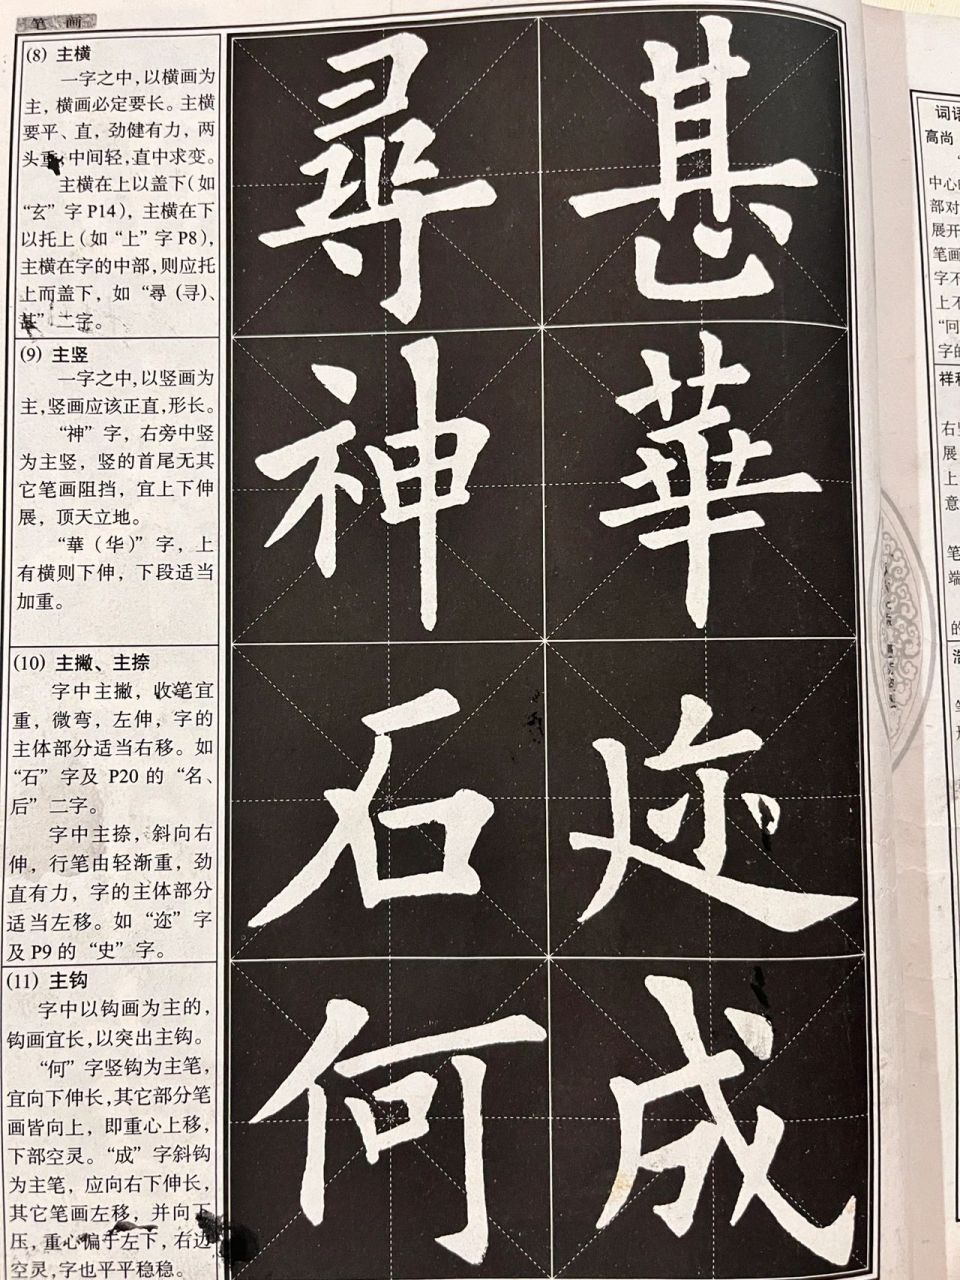 笔画
(8) 主横
一字之中，以横画为
主，横画必定要长。主横
要平、直，劲健有力，两
头重，中间轻，直中求变。
主横在上以盖下（如
“玄”字P14），主横在下
以托上（如“上”字P8），
主横在字的中部，则应托
上而盖下，如“尋（寻）、
甚”二字。
(9) 主竖
一字之中，以竖画为
主，竖画应该正直，形长。
“神”字，右旁中竖
为主竖，竖的首尾无其
它笔画阻挡，宜上下伸
展，顶天立地。
“華（华）”字，上
有横则下伸，下段适当
加重。
(10) 主撇、主捺
字中主撇，收笔宜
重，微弯，左伸，字的
主体部分适当右移。如
“石”字及P20的“名、
后”二字。
字中主捺，斜向右
伸，行笔由轻渐重，劲
直有力，字的主体部分
适当左移。如“迩”字
及P9的“史”字。
(11) 主钩
字中以钩画为主的，
钩画宜长，以突出主钩。
“何”字竖钩为主笔，
宜向下伸长，其它部分笔
画皆向上，即重心上移，
下部空灵。“成”字斜钩
为主笔，应向右下伸长，
其它笔画左移，并向下
压，重心偏于左下，右边
空灵，字也平平稳稳。
尋甚
神華
石迩
何成
词语
高尚
中心
部对
展开
笔画
字不
上不
“同
字的
祥和
右竖
展
上
意
笔
端
的